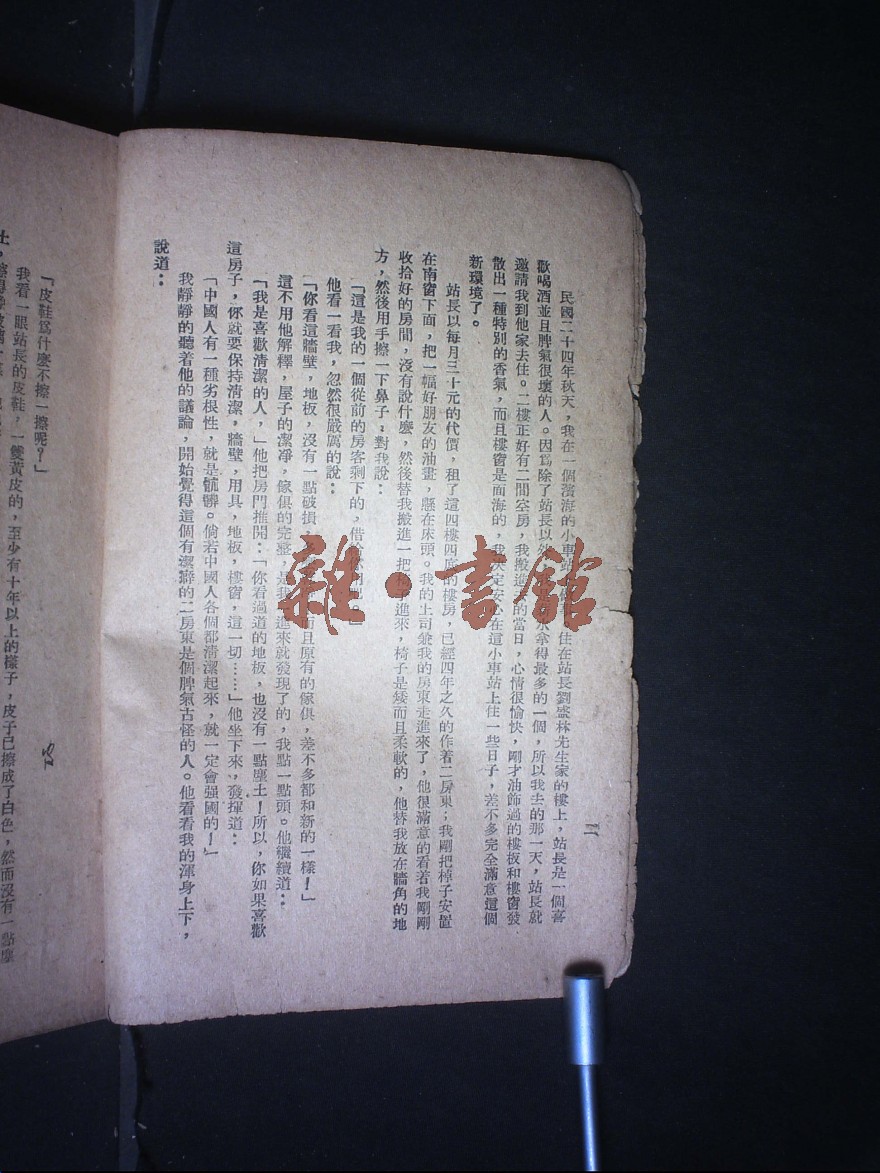 二
民國二十四年秋天，我在一個濱海的小車站
住在站長劉盛林先生家的樓上，站長是一個喜
歡喝酒並且脾氣很壞的人。因爲除了站長以
拿得最多的一個，所以我去的那一天，站長就
邀請我到他家去住。二樓正好有二間空房，我搬進
的當日，心情很愉快，剛才油飾過的樓板和樓窗發
散出一種特別的香氣，而且樓窗是面海的，我決定安心在這小車站上住一些日子，差不多完全滿意這個
新環境了。
站長以每月三十元的代價，租了這四樓四底的樓房，已經四年之久的作着二房東；我剛把棹子安置
在南窗下面，把一幅好朋友的油畫，懸在床頭。我的上司兼我的房東走進來了，他很滿意的看着我剛剛
收拾好的房間，沒有說什麼，然後替我搬進一把椅子進來，椅子是矮而且柔軟的，他替我放在牆角的地
方，然後用手擦一下鼻子，對我說：
「這是我的一個從前的房客剩下的，借給
他看一看我，忽然很嚴厲的說：
「你看這牆壁，地板，沒有一點破損，
而且原有的傢俱，差不多都和新的一樣！」
這不用他解釋，屋子的潔凈，傢俱的完整，是我
進來就發現了的，我點一點頭。他繼續道：
「我是喜歡清潔的人，」他把房門推開：「你看過道的地板，也沒有一點塵土！所以，你如果喜歡
這房子，你就要保持清潔，牆壁，用具，地板，樓窗，這一切……」他坐下來，發揮道：
「中國人有一種劣根性，就是骯髒。倘若中國人各個都清潔起來，就一定會强國的！」
我靜靜的聽着他的議論，開始覺得這個有潔癖的二房東是個脾氣古怪的人。他看看我的渾身上下，
說道：
「皮鞋爲什麼不擦一擦呢？」
我看一眼站長的皮鞋，一雙黃皮的，至少有十年以上的樣子，皮子已擦成了白色，然而沒有一點塵
土，
雜·書館